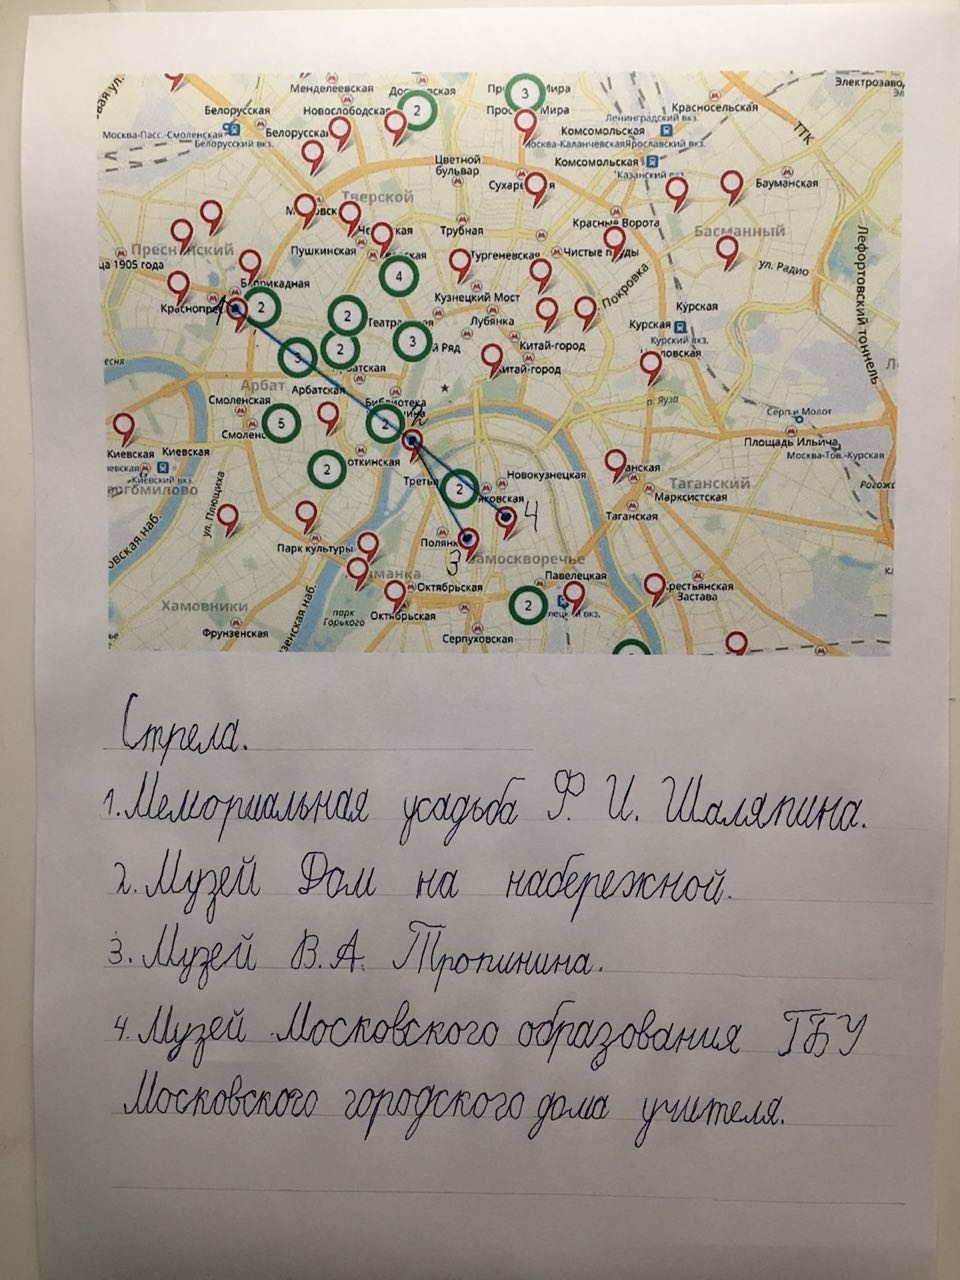 Электрозаво
Менделеевская
Белорусская
Новослободская
3
2
Красносельская
ТТК
Ленинградский вкз.
Москва-Пасс.-Смоленская
Белорусская
Белорусский вкз.
Комсомольская
Москва-Каланчевская
Ярославский вкз.
Цветной
бульвар
Комсомольская
Казанский вкз.
Бауманская
Тверской
Красные Ворота
Пушкинская
Трубная
Басманный
Тургеневская
Чистые пруды
ца 1905 года
ул. Радио
Лефортовский тоннель
4
Покровка
Кузнецкий Мост
Курская
1
2
2
Лубянка
Курская
Курский вкз.
3
2
3
й Ряд
Китай-город
Китай-город
Арбат
Арбатская
Смоленская
Библиотека
р. Яуза
Серп и Молот
5
2
2
Площадь Ильича
Москва-Тов.-Курская
Киевская
Киевская
Киевский вкз.
2
Новокузнецкая
Таганский
Марксистская
2
Таганская
ул. Плющиха
4
Парк культуры
3
Замоскворечье
Октябрьская
Павелецкая
Хамовники
парк
Горького
Октябрьская
2
Застава
Фрунзенская
Серпуховская
Стрела.
1. Мемориальная усадьба Ф. И. Шаляпина.
2. Музей Дом на набережной.
3. Музей В.А. Тропинина.
4. Музей Московского образования ГБУ
Московского городского дома учителя.